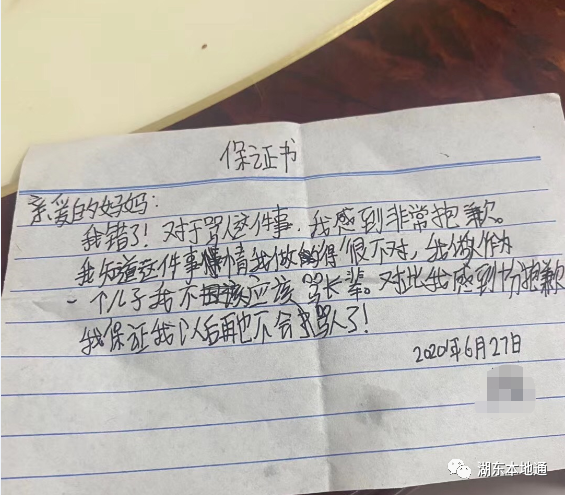 保证书
亲爱的妈妈:
我错了!对于骂人这件事,我感到非常抱歉。
我知道这件事情我做的得很不对,我做作为
一个儿子我不该应该骂长辈。对此我感到十分抱歉
我保证我以后再也不会骂人了!
2020年6月27日
湖东本地通